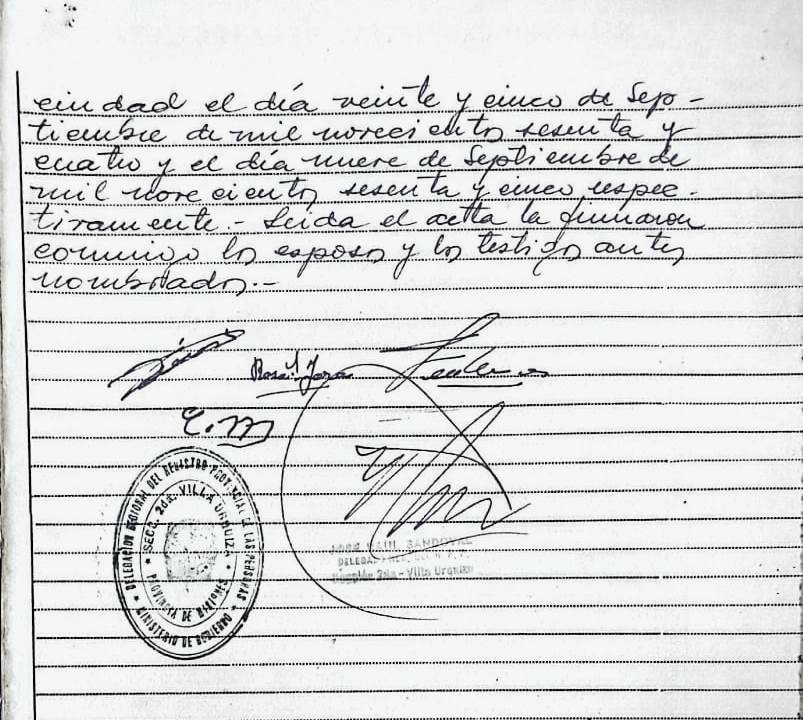 ciudad el día veinte y cinco de Sep-
tiembre de mil novecientos sesenta y
cuatro y el día nueve de Septiembre de
mil novecientos sesenta y cinco respec-
tivamente.- Leida el actta la firmaron
conmigo los esposos y los testigos antes
nombrados.-
Rosa Jara
E. M
DELEGACION REGIONAL DEL REGISTRO PROVINCIAL DE LAS PERSONAS
SECC. 2da. VILLA URQUIZA
PROVINCIA DE MISIONES
MINISTERIO DE GOBIERNO
JOSE RAUL SANDOVAL
Sección 2da - Villa Urquiza